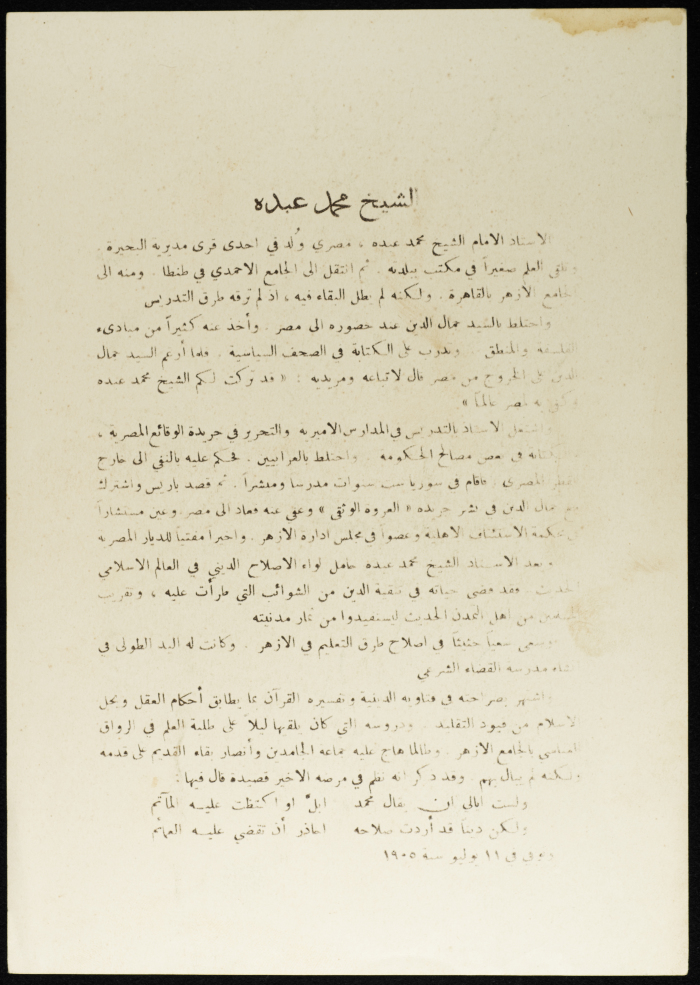 الشيخ محمد عبده
الاستاذ الامام الشيخ محمد عبده ، مصري وُلد في احدى قرى مديرية البحيرة .
وتلقى العلم صغيراً في مكتب ببلدته . ثم انتقل الى الجامع الاحمدي في طنطا . ومنه الى
الجامع الازهر بالقاهرة . ولكنه لم يطل البقاء فيه ، اذ لم ترقه طرق التدريس
واختلط بالسيد جمال الدين عند حضوره الى مصر . وأخذ عنه كثيراً من مبادىء
الفلسفة والمنطق . وتدرب على الكتابة في الصحف السياسية . فلما أرغم السيد جمال
الدين على الخروج من مصر قال لاتباعه ومريديه : « قد تركت لكم الشيخ محمد عبده
وكفى به لمصر عالماً »
واشتغل الاستاذ بالتدريس في المدارس الاميرية والتحرير في جريدة الوقائع المصرية ،
والكتابة في بعض مصالح الحكومة . واختلط بالعرابيين . فحكم عليه بالنفي الى خارج
القطر المصري . فاقام في سوريا ست سنوات مدرساً ومنشئاً . ثم قصد باريس واشترك
مع جمال الدين في نشر جريدة « العروة الوثقى » وعفي عنه فعاد الى مصر وعين مستشاراً
في محكمة الاستئناف الاهلية وعضواً في مجلس ادارة الازهر . واخيراً مفتياً للديار المصرية
ويعد الاستاذ الشيخ محمد عبده حامل لواء الاصلاح الديني في العالم الاسلامي
الحديث . فقد قضى حياته في تنقية الدين من الشوائب التي طرأت عليه ، وتقريب
المسلمين من اهل التمدن الحديث ليستفيدوا من ثمار مدنيته
وسعى سعياً حثيثاً في اصلاح طرق التعليم في الازهر . وكانت له اليد الطولى في
انشاء مدرسة القضاء الشرعي
واشتهر بصراحته في فتاويه الدينية وتفسيره القرآن بما يطابق أحكام العقل ويحل
الاسلام من قيود التقليد . ودروسه التي كان يلقيها ليلاً على طلبة العلم في الرواق
العباسي بالجامع الازهر . وطالما هاج عليه جماعة الجامدين وأنصار بقاء القديم على قدمه
ولكنه لم يبال بهم . وقد ذكر انه نظم في مرضه الاخير قصيدة قال فيها :
ولست أبالي ان يقال محمد ابلّ او اكتظت عليه المآتم
ولكن ديناً قد أردت صلاحه احاذر أن تقضي عليه العمائم
وتوفي في ١١ يوليو سنة ١٩٠٥